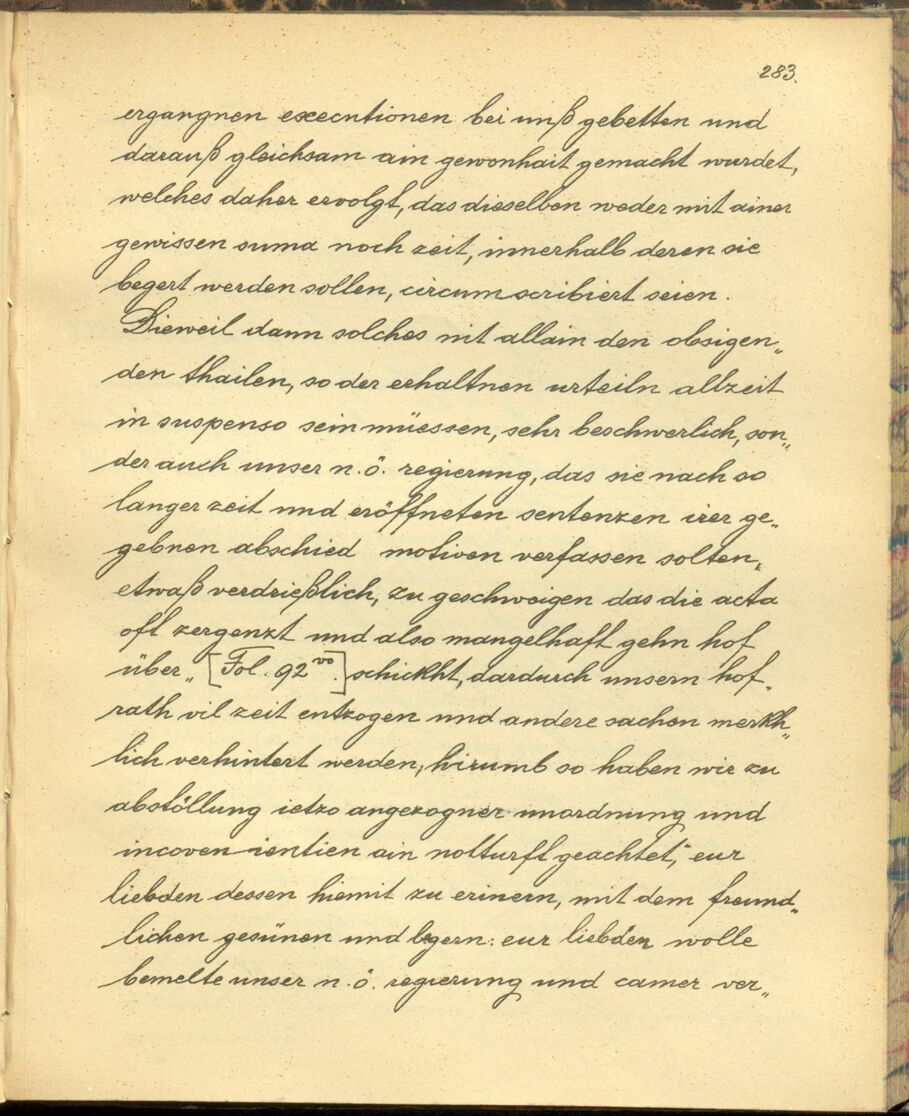 283.
ergangnen executionen bei unß gebetten und
darauß gleichsam ain gewonhait gemacht wurdet,
welches daher ervolgt, das dieselben weder mit ainer
gewissen suma noch zeit, innerhalb deren sie
begert werden sollen, circumscribiert seien.
Dieweil dann solches nit allain den obsigen„
den thailen, so der erhaltnen urteiln allzeit
in suspenso sein müessen, sehr beschwerlich, son„
der auch unser n. ö. regierung, das sie nach so
langer zeit und eröffneten sentenzen irer ge„
gebnen abschied motiven verfassen solten,
etwaß verdrießlich, zu geschweigen das die acta
oft zergenzt und also mangelhaft gehn hof
über„ [Fol. 92 vo.] schickht, dardurch unsern hof„
rath vil zeit entzogen und andere sachen merkh„
lich verhintert werden, hirumb so haben wir zu
abstöllung ietzo angezogner unordnung und
incoven-ientien ain notturft geachtet, eur
liebden dessen hiemit zu erinern, mit dem freund„
lichen gesünen und bgern: eur liebden wolle
bemelte unser n. ö. regierung und camer ver„